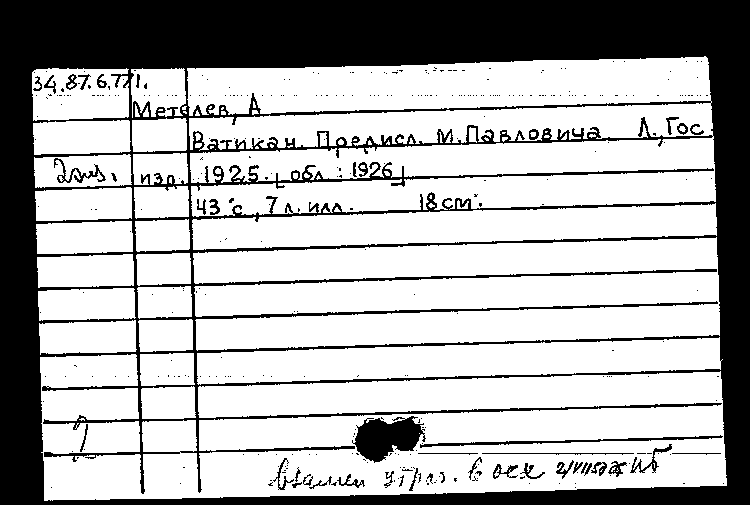 34.87.6.771.
Метелев, А
Ватикан. Предисл. М. Павловича Л., Гос.
2экз. изд., 1925. [обл : 1926]
43 с., 7 л. илл. 18 cm.
2
Взамен утрач. в осх